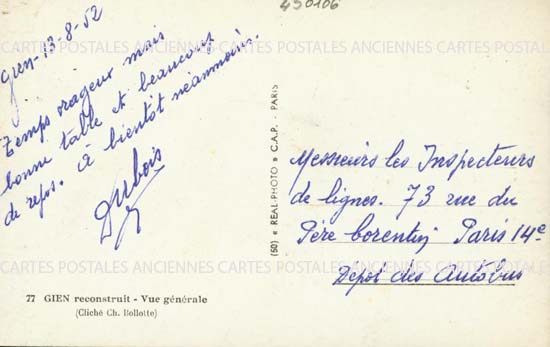 430106
Gien-13-8-52
Temps orageux mais
bonne table et beaucoup
de repos. à bientôt néanmoins.
Dubois
77 GIEN reconstruit - Vue générale
(Cliché Ch. Bollotte)
(50) « REAL-PHOTO » C.A.P. - PARIS
Messieurs les Inspecteurs
de lignes. 73 rue du
Père Corentin Paris 14e
Dépot des Autobus
CARTES POSTALES ANCIENNES CARTES POSTALES ANCIENNES CARTES POSTALES
CARTES POSTALES ANCIENNES CARTES POSTALES ANCIENNES CARTES POSTALES